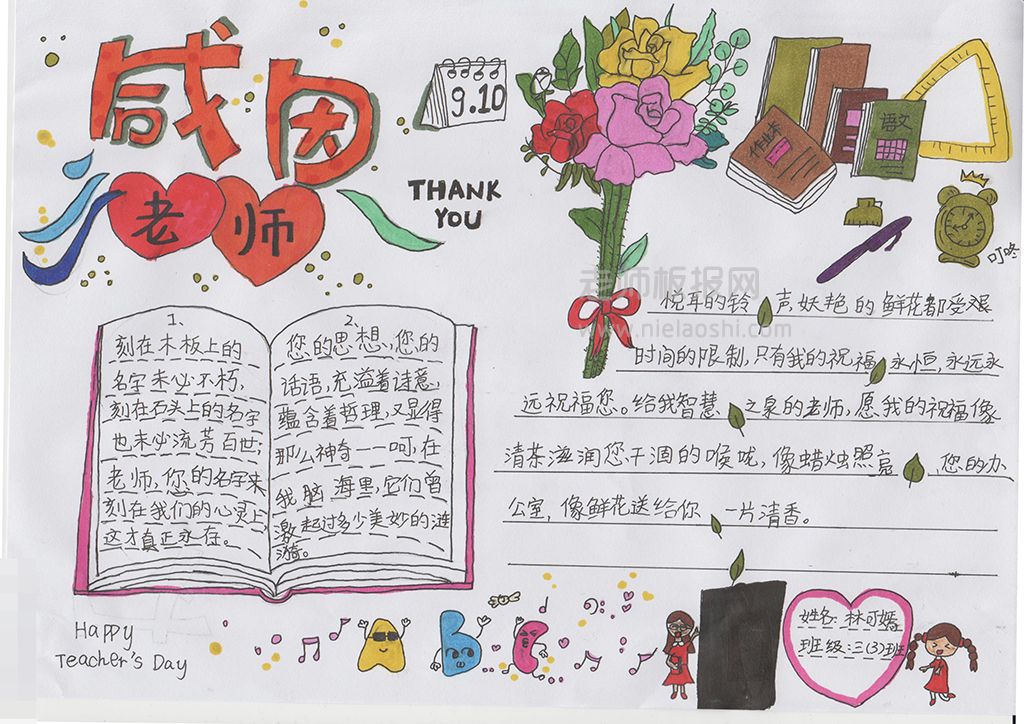 感恩
老师
9.10
THANK
YOU
作业本
语文
叮咚
老师板报网
www.nielaoshi.com
1、
刻在木板上的
名字未必不朽,
刻在石头上的名字
也未必流芳百世;
老师,您的名字来
刻在我们的心灵上,
这才真正永存。
2、
您的思想,您的
话语,充溢着诗意,
蕴含着哲理,又显得
那么神奇——呵,在
我脑海里,它们曾
激起过多少美妙的涟
漪。
悦耳的铃声,妖艳的鲜花都受艰
时间的限制,只有我的祝福永恒,永远永
远祝福您。给我智慧之泉的老师,愿我的祝福像
清茶滋润您干涸的喉咙,像蜡烛照亮您的办
公室,像鲜花送给你一片清香。
Happy
Teacher's Day
A B C
姓名:林可嫣
班级:三(3)班